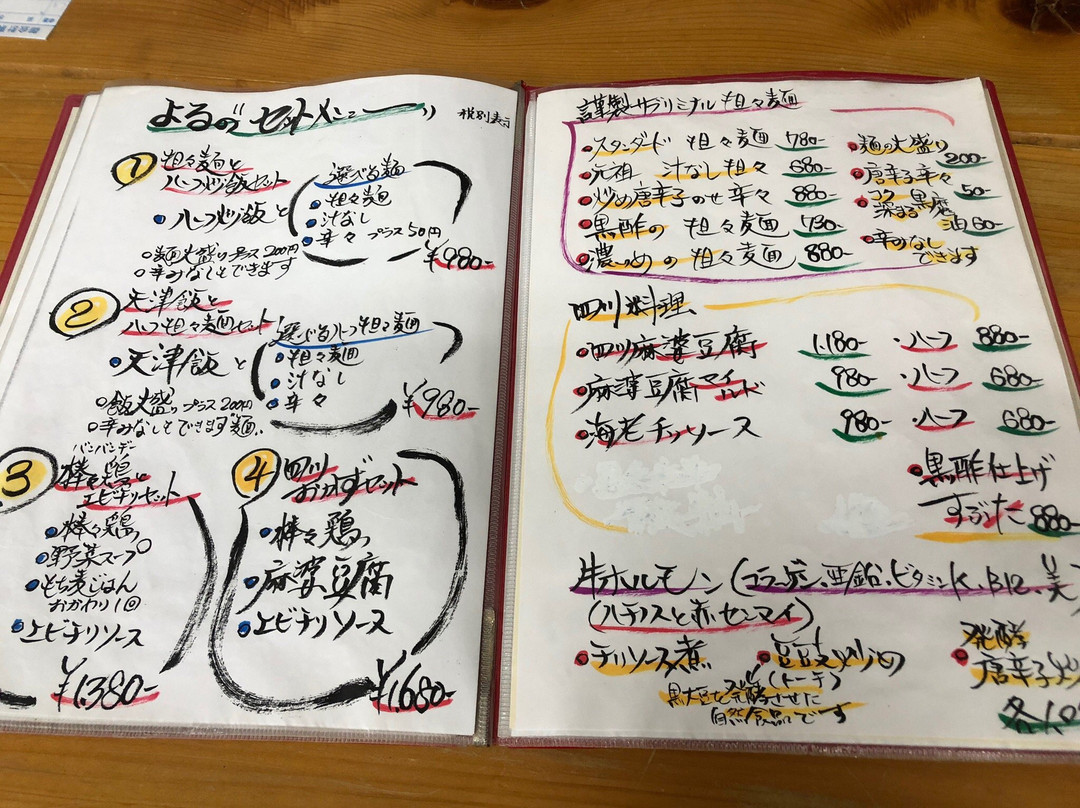 よるの セットメニュー
税別表示
① 担々麺と
ハーフ炒飯セット
ハーフ炒飯と
選べる麺
担々麺
汁なし
辛々 プラス50円
○麺大盛りプラス200円
○辛みなしもできます
¥980-
② 天津飯と
ハーフ担々麺セット
天津飯と
選べるハーフ担々麺
担々麺
汁なし
辛々
○飯大盛りプラス200円
○辛みなしもできます麺、
¥980-
バンバンヂー
3 棒々鶏と
エビチリセット
棒々鶏
野菜スープ
もち麦ごはん
おかわり1回
エビチリソース
¥1.380-
④ 四川
おかずセット
棒々鶏
麻婆豆腐
エビチリソース
¥1.680-
謹製サブリミナル担々麺
スタンダード 担々麺 780-
元祖 汁なし担々 680-
炒め唐辛子のせ辛々 880-
黒酢の 担々麺 730-
濃いめの 担々麺 880-
麺の大盛り
200-
唐辛子辛々
50-
コク深まる黒麻油 60-
辛みなし
できます
四川料理
四川麻婆豆腐 1.180- ・ハーフ 880-
麻婆豆腐マイルド 980- ・ハーフ 680-
海老チリソース 980- ・ハーフ 680-
黒酢仕上げ
すぶた 880-
牛ホルモン(コラーゲン、亜鉛、ビタミンK、B12、美
(ハチノスと赤センマイ)
チリソース煮
豆豉炒め
(トーチ)
黒大豆を発酵させた
自然食品です
発酵
唐辛子炒
各10